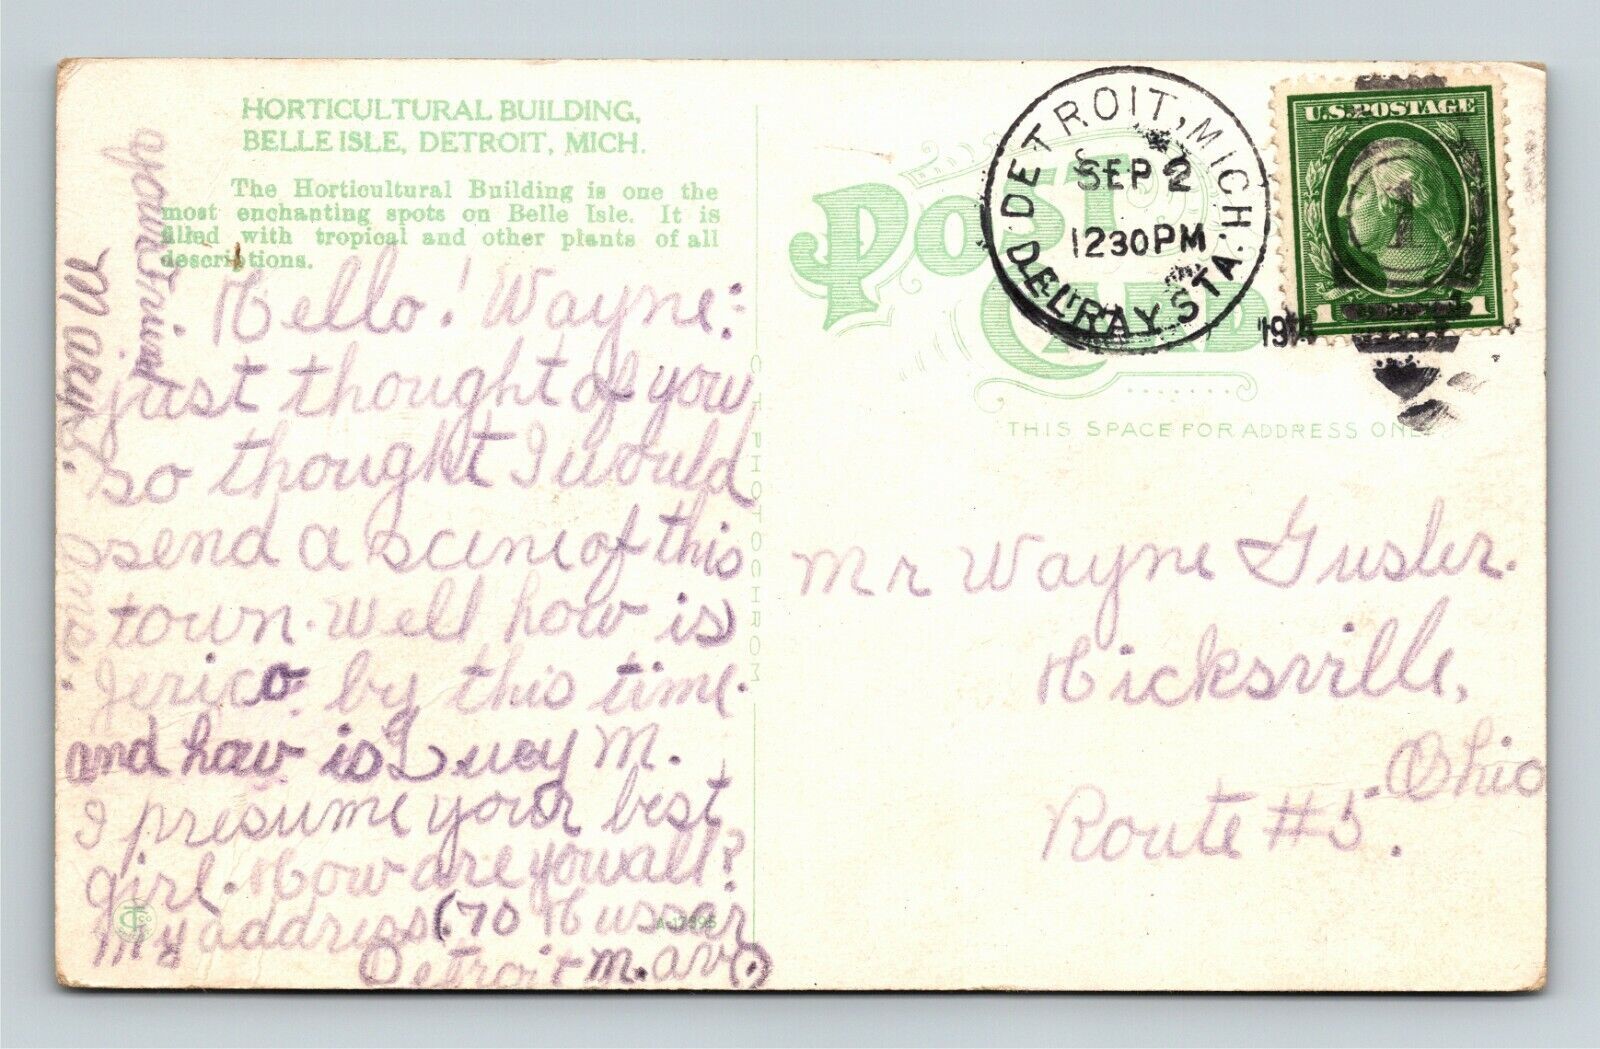 HORTICULTURAL BUILDING,
BELLE ISLE, DETROIT, MICH.
The Horticultural Building is one the
most enchanting spots on Belle Isle. It is
filled with tropical and other plants of all
descriptions.
Hello! Wayne:
just thought of you
so thought I would
send a scene of this
town. Well how is
Jerico by this time.
and how is Lucy M.
I presume your best
girl. How are you all?
My address (70 Husser
Detroit M. ave.)
your Friend
C.T. PHOTOCHROM
A-17395
POST CARD
THIS SPACE FOR ADDRESS ONLY
DETROIT, MICH.
SEP 2
1230PM
DELRAY STA.
U.S. POSTAGE
1
1
Mr Wayne Gusler.
Hicksville,
Ohio
Route #5.